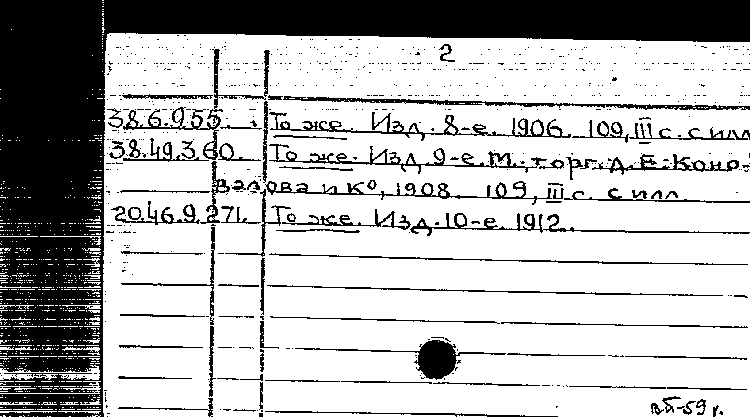 2
38.6.955. То же. Изд. 8-е. 1906. 109, III с. с илл
38.49.3.60. То же. Изд. 9-е. М., торг. д. Е. Коно-
валова и К⁰, 1908. 109, III с. с илл.
20.46.9.271. То же. Изд. 10-е. 1912.
вп-59 г.